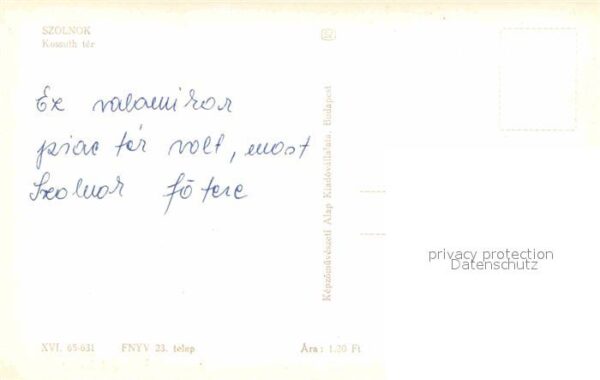 SZOLNOK
Kossuth tér
Ez valamikor
piac tér volt, most
Szolnok fő tere
Képzőművészeti Alap Kiadóvállalata, Budapest
privacy protection
Datenschutz
XVI. 65-631 FNYV 23. telep Ára: 1,20 Ft